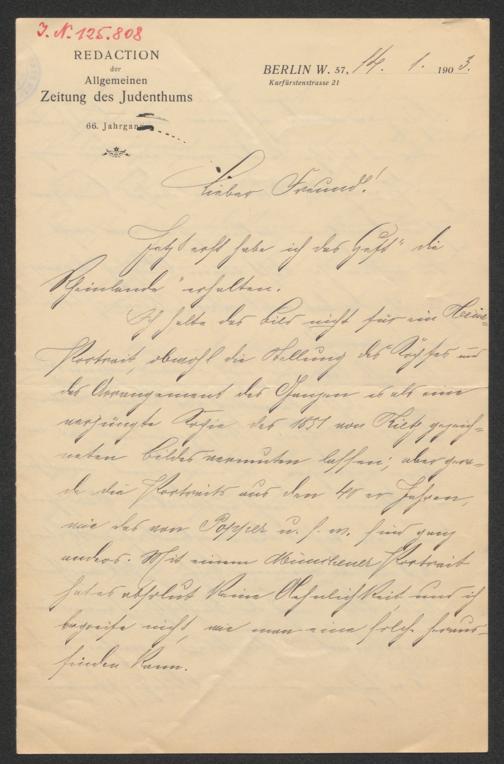 J. N. 125.808
REDACTION
der
Allgemeinen
Zeitung des Judenthums
66. Jahrgang
BERLIN W. 57, 14. 1. 1903.
Kurfürstenstrasse 21
Lieber Freund!
Jetzt erst habe ich das Heft "die
Rheinlande" erhalten.
Ich halte das Bild nicht für ein Heine-
Portrait, obwohl die Stellung des Kopfes und
das Arrangement des Ganzen es als eine
verjüngte Kopie des 1851 von Kietz gezeich-
neten Bildes vermuten lassen; aber gera-
de die Portraits aus den 40er Jahren,
wie das von Popper u. s. w. sind ganz
anders. Mit einem Münchener Portrait
hat es absolut keine Aehnlichkeit und ich
begreife nicht, wie man eine solche heraus-
finden kann.